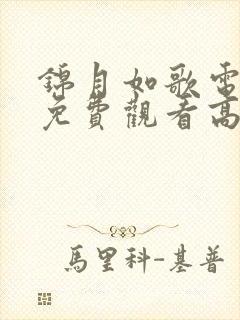 錦月如歌電
免費觀看高
馬里科-基普